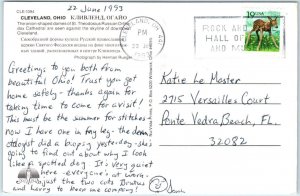 22 June 1993
CLE-1094
CLEVELAND, OHIO КЛИВЛЕНД ОГАЙО
The onion-shaped domes of St. Theodosius Russian Orthodox Cathedral are seen against the skyline of downtown Cleveland.
Photograph by Herman Rungel
Greetings to you both from
beautiful Ohio! Trust you got
home safely - thanks again for
taking time to come for a visit!
This must be the summer for stitches
now I have one in my leg - the derm-
atologist did a biopsy yesterday - she's
going to find out about why I look
like a spotted dog. It's very quiet
here - everyone's at work.
just the two cats Brutus
and Harry to keep me company!
CLEVELAND, OH
PM
22 JUN
1993
ROCK AND
HALL OF
AND MU
19
Katie Le Master
2715 Versailles Court
Ponte Vedra Beach, FL.
32082